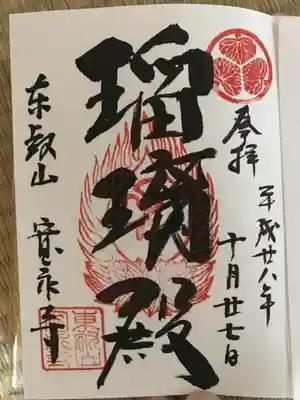 奉拝
平成廿八年
十月廿七日
瑠璃殿
東叡山 寛永寺